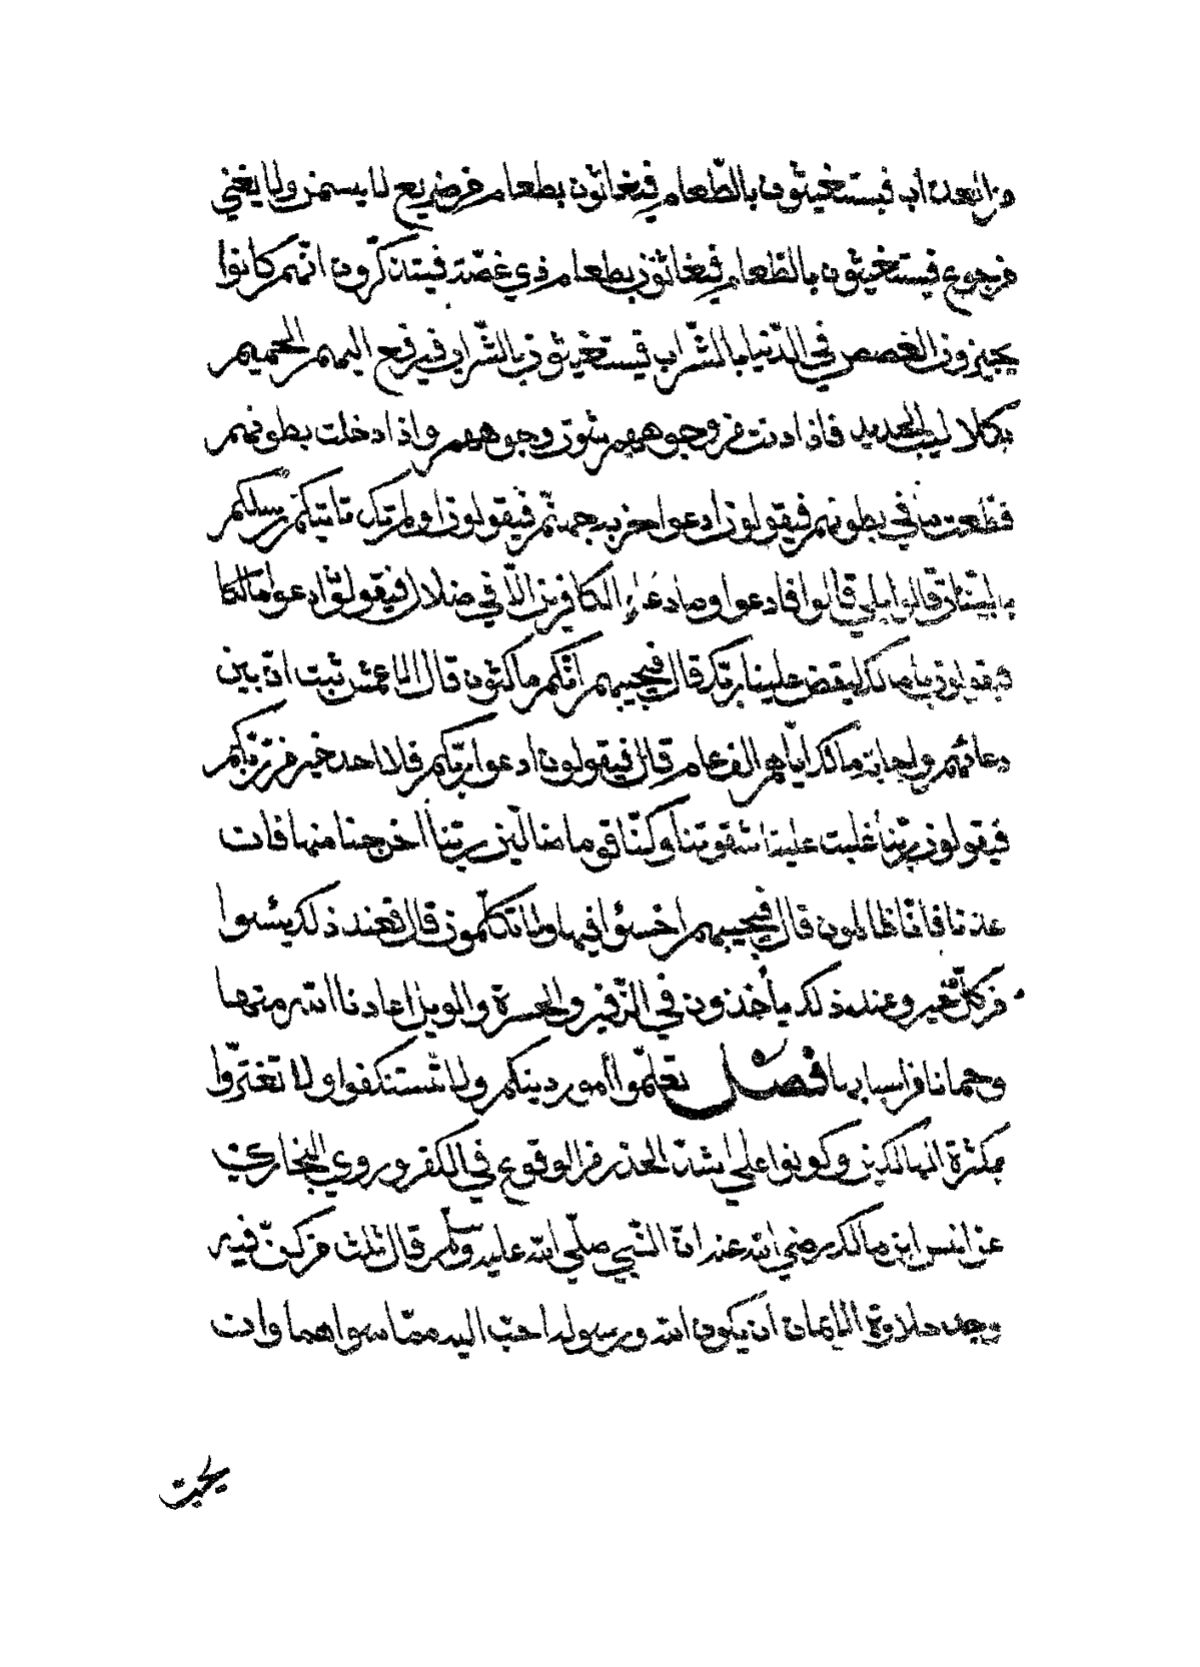 من العذاب فيستغيثون بالطّعام فيغاثون بطعام من ضريع لا يسمن ولا يغني
من جوع فيستغيثون بالطعام فيغاثون بطعام ذي غصّة فيتذكّرون انّهم كانوا
يجيزون الغصص في الدّنيا بالشّراب فيستغيثون بالشّراب فيرفع اليهم الحميم
بكلاليب الحديد فاذا دنت من وجوههم شوت وجوههم واذا دخلت بطونهم
قطّعت ما في بطونهم فيقولون ادعوا خزنة جهنّم فيقولون اولم تك تاتيكم رسلكم
بالبيّنات قالوا بلى قالوا فادعوا وما دعاء الكافرين الّا في ضلال فيقولون ادعوا مالكا
فيقولون يا مالك ليقض علينا ربّك قال فيجيبهم انّكم ماكثون قال الاعمش ثبت ان بين
دعائهم واجابة مالك ايّاهم الف عام قال فيقولون ادعوا ربّكم فلا احد خير من ربّكم
فيقولون ربّنا غلبت علينا شقوتنا وكنّا قوما ضالّين ربّنا اخرجنا منها فان
عدنا فانّا ظالمون قال فيجيبهم اخسئوا فيها ولا تكلّمون قال فعند ذلك يئسوا
من كلّ خير وعند ذلك يأخذون في الزّفير والحسرة والويل اعاذنا الله منها
وحمانا من اسبابها فصل تعلّموا أمور دينكم ولا تستنكفوا ولا تغترّوا
بكثرة الهالكين وكونوا على اشدّ الحذر من الوقوع في الكفر وروي البخاري
عن انس ابن مالك رضي الله عنه انّ النّبي صلّى الله عليه وسلم قال ثلث من كنّ فيه
وجد حلاوة الايمان ان يكون الله ورسوله احبّ اليه ممّا سواهما وان
يحبّ